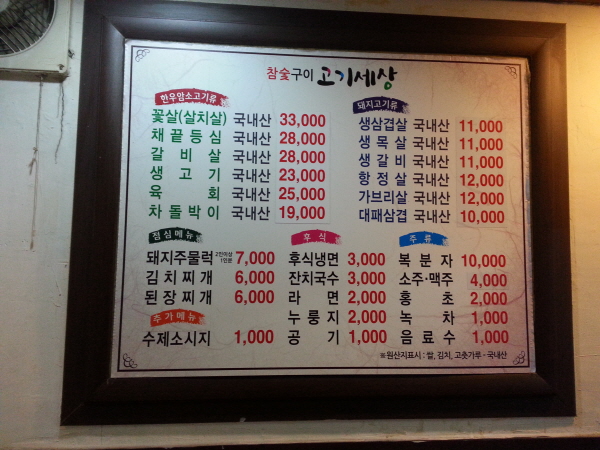 참숯구이 고기세상
한우암소고기류
꽃살(살치살) 국내산 33,000
채끝등심 국내산 28,000
갈비살 국내산 28,000
생고기 국내산 23,000
육회 국내산 25,000
차돌박이 국내산 19,000
돼지고기류
생삼겹살 국내산 11,000
생목살 국내산 11,000
생갈비 국내산 11,000
항정살 국내산 12,000
가브리살 국내산 12,000
대패삼겹 국내산 10,000
점심메뉴
돼지주물럭 2인이상 1인분 7,000
김치찌개 6,000
된장찌개 6,000
추가메뉴
수제소시지 1,000
후식
후식냉면 3,000
잔치국수 3,000
라면 2,000
누룽지 2,000
공기 1,000
주류
복분자 10,000
소주·맥주 4,000
홍초 2,000
녹차 1,000
음료수 1,000
※원산지표시 : 쌀, 김치, 고춧가루 - 국내산